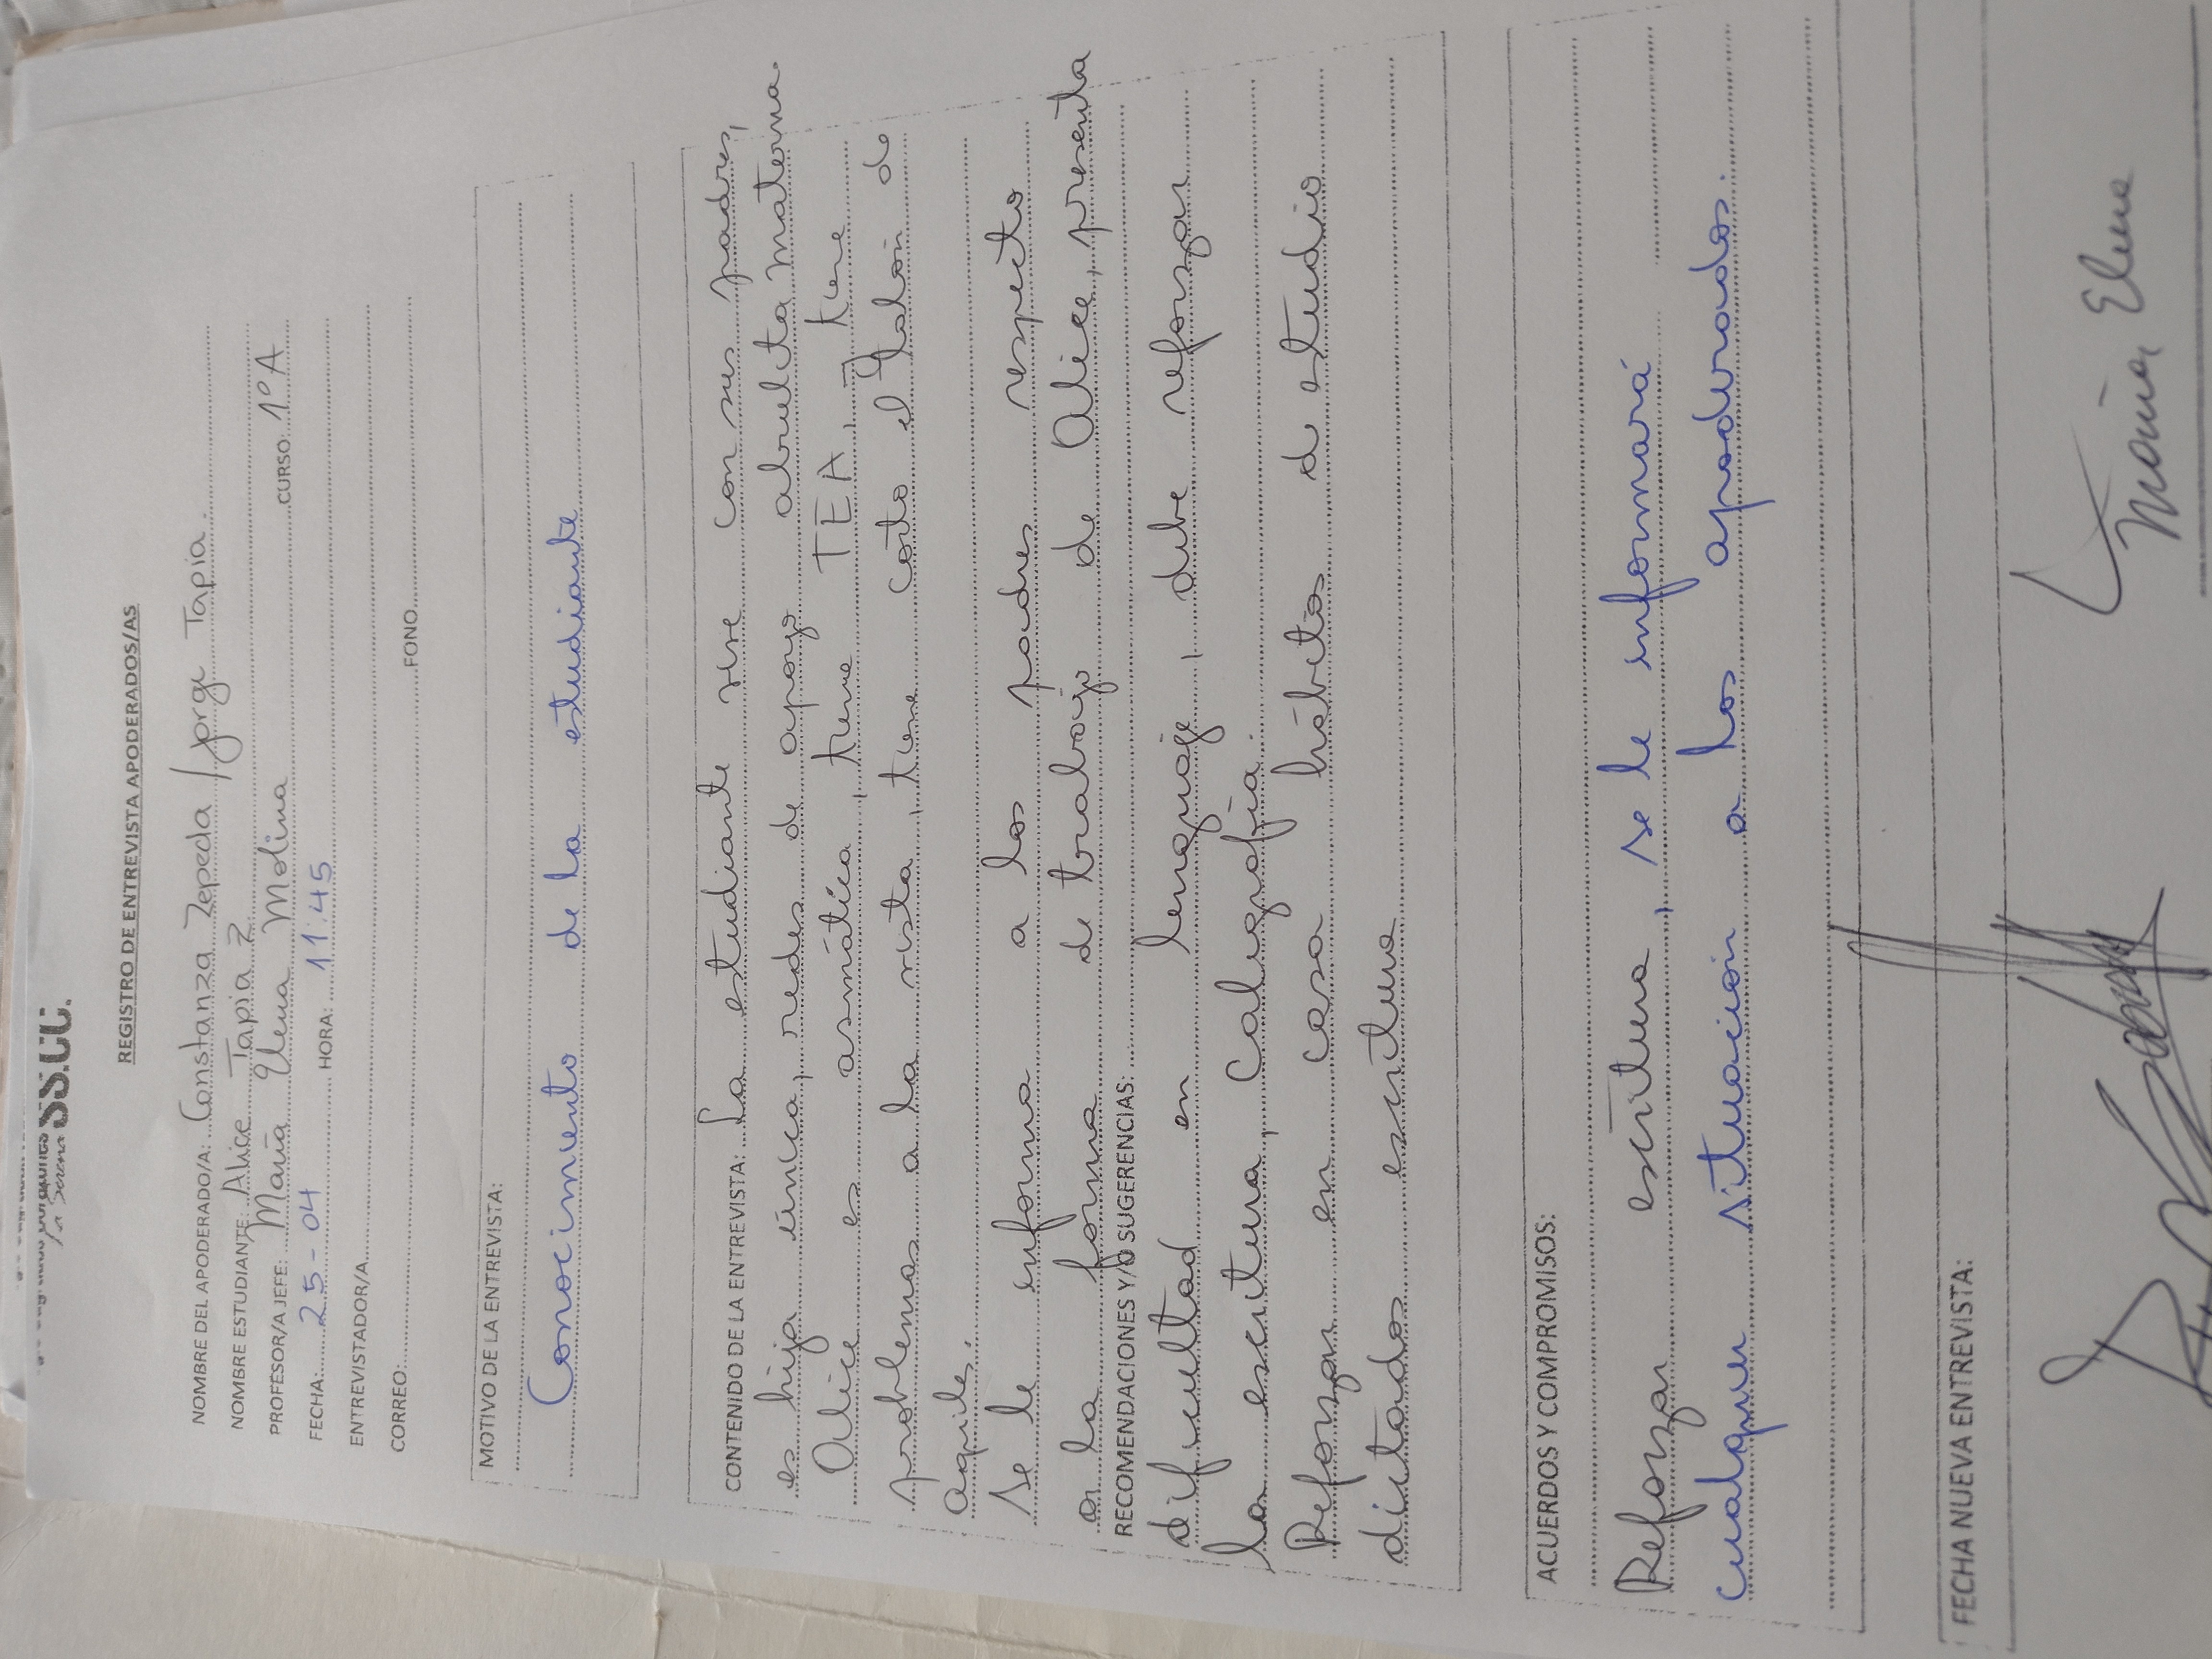 La Serena SS.CC.
REGISTRO DE ENTREVISTA APODERADOS/AS
NOMBRE DEL APODERADO/A: Constanza Zepeda / Jorge Tapia.
NOMBRE ESTUDIANTE: Alice Tapia Z.
PROFESOR/A JEFE: María Elena Molina CURSO: 1º A
FECHA: 25-04 HORA: 11:45
ENTREVISTADOR/A
CORREO: FONO
MOTIVO DE LA ENTREVISTA:
Conocimiento de la estudiante
CONTENIDO DE LA ENTREVISTA: La estudiante vive con sus padres,
es hija única, redes de apoyo abuelita materna.
Alice es asmática, tiene TEA, tiene
problemas a la vista, tiene corto el talón de
aquiles.
Se le informa a los padres respecto
a la forma de trabajo de Alice, presenta
RECOMENDACIONES Y/O SUGERENCIAS:
dificultad en lenguaje, debe reforzar
la escritura, Caligrafía.
Reforzar en casa hábitos de estudio
dictados escritura
ACUERDOS Y COMPROMISOS:
Reforzar escritura, se le informará
cualquier situación a los apoderados.
FECHA NUEVA ENTREVISTA:
María Elena